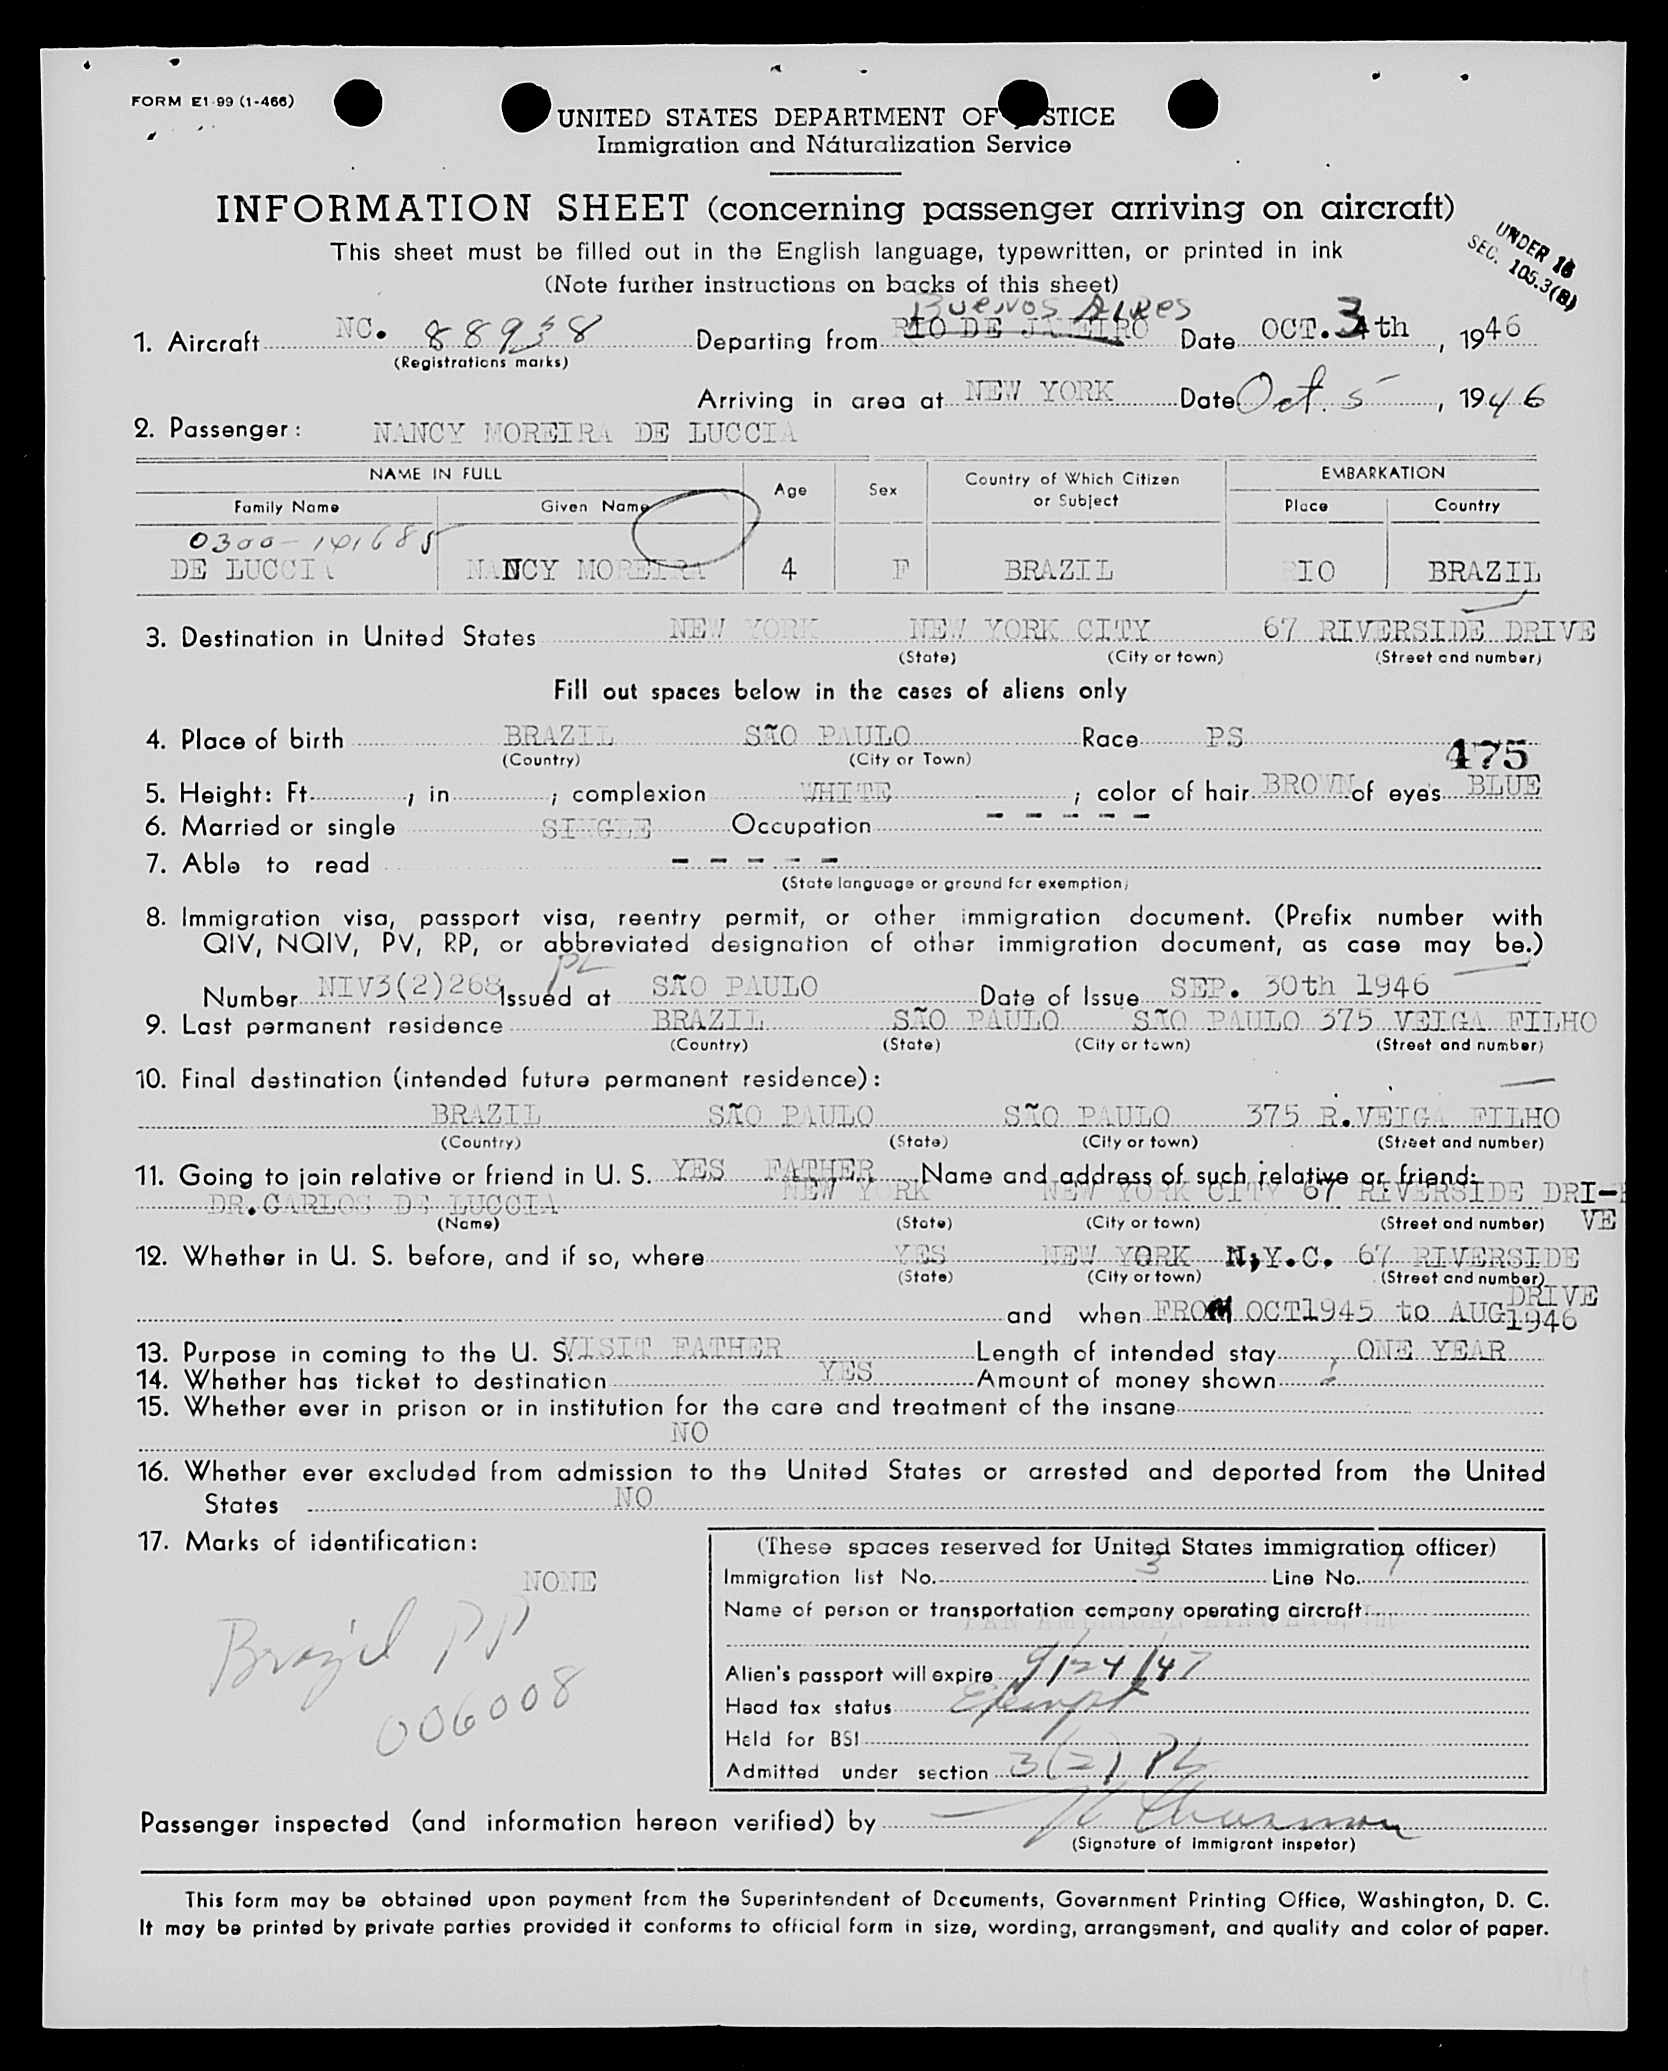 FORM E1-99 (1-466)
UNITED STATES DEPARTMENT OF STICE
Immigration and Náturalization Service
INFORMATION SHEET (concerning passenger arriving on aircraft)
This sheet must be filled out in the English language, typewritten, or printed in ink
(Note further instructions on backs of this sheet)
UNDER 16
SEC. 105.3(B)
Buenos Aires
1. Aircraft NC. 88938 Departing from RIO DE JANEIRO Date OCT. 3 th, 1946
(Registrations marks)
Arriving in area at NEW YORK Date Oct. 5, 1946
2. Passenger: NANCY MOREIRA DE LUCCIA
NAME IN FULL Age Sex Country of Which Citizen or Subject EMBARKATION
Family Name Given Name Place Country
0300-141685
DE LUCCIA NANCY MOREIRA 4 F BRAZIL RIO BRAZIL
3. Destination in United States NEW YORK NEW YORK CITY 67 RIVERSIDE DRIVE
(State) (City or town) (Street and number)
Fill out spaces below in the cases of aliens only
4. Place of birth BRAZIL SÃO PAULO Race PS
(Country) (City or Town)
475
5. Height: Ft. , in ; complexion WHITE ; color of hair BROWN of eyes BLUE
6. Married or single SINGLE Occupation - - - - -
7. Able to read - - - - -
(State language or ground for exemption)
8. Immigration visa, passport visa, reentry permit, or other immigration document. (Prefix number with
QIV, NQIV, PV, RP, or abbreviated designation of other immigration document, as case may be.)
PL
Number NIV3(2)268 Issued at SÃO PAULO Date of Issue SEP. 30th 1946
9. Last permanent residence BRAZIL SÃO PAULO SÃO PAULO 375 VEIGA FILHO
(Country) (State) (City or town) (Street and number)
10. Final destination (intended future permanent residence):
BRAZIL SÃO PAULO SÃO PAULO 375 R.VEIGA FILHO
(Country) (State) (City or town) (Street and number)
11. Going to join relative or friend in U. S. YES FATHER Name and address of such relative or friend:
DR.CARLOS DE LUCCIA NEW YORK NEW YORK CITY 67 RIVERSIDE DRI-
VE
(Name) (State) (City or town) (Street and number)
12. Whether in U. S. before, and if so, where YES NEW YORK N,Y.C. 67 RIVERSIDE
(State) (City or town) (Street and number)
DRIVE
and when FROM OCT1945 to AUG1946
13. Purpose in coming to the U. S. VISIT FATHER Length of intended stay ONE YEAR
14. Whether has ticket to destination YES Amount of money shown
15. Whether ever in prison or in institution for the care and treatment of the insane
NO
16. Whether ever excluded from admission to the United States or arrested and deported from the United
States NO
17. Marks of identification:
NONE
Brazil PP
006008
(These spaces reserved for United States immigration officer)
Immigration list No. 3 Line No. 7
Name of person or transportation company operating aircraft:
PAN AMERICAN AIRWAYS, INC
Alien's passport will expire 9/24/47
Head tax status Exempt
Held for BSI
Admitted under section 3(2) PL
Passenger inspected (and information hereon verified) by
(Signature of immigrant inspetor)
This form may be obtained upon payment from the Superintendent of Documents, Government Printing Office, Washington, D. C.
It may be printed by private parties provided it conforms to official form in size, wording, arrangement, and quality and color of paper.